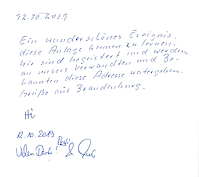 12.10.2019
Ein wunderschönes Ereignis,
diese Anlage kennen zu lernen.
Wir sind begeistert und werden
an unsere Verwandten und Be-
kannten diese Adresse weitergeben.
Grüße aus Brandenburg.
Hi
12.10.2019
Vielen Dank!